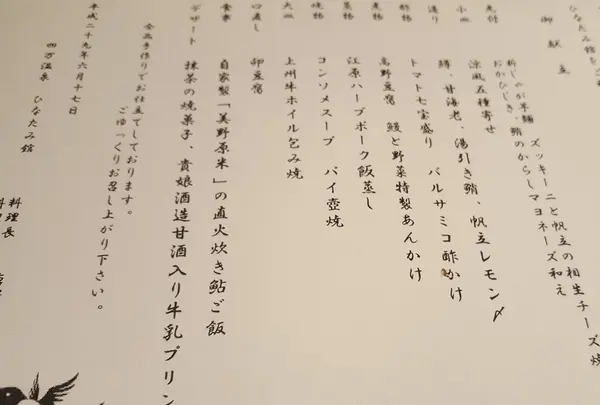 ひなたみ館
御献立
先付
ズッキーニと帆立の相生チーズ焼
おかひじき、鮹のからしマヨネーズ和え
小皿 涼風五種寄せ
造り 鱒、甘海老、湯引き鮹、帆立レモン〆
酢物 トマト七宝盛り バルサミコ酢かけ
煮物 高野豆腐 鰻と野菜特製あんかけ
蒸物 江原ハーブポーク飯蒸し
焼物 コンソメスープ パイ壺焼
大皿 上州牛ホイル包み焼
口直し 卵豆腐
食事 自家製「美野原米」の直火炊き鮎ご飯
デザート 抹茶の焼菓子、貴娘酒造甘酒入り牛乳プリン
全品手作りでお仕立てしております。
ごゆっくりお召し上がり下さい。
平成二十九年六月十七日
四万温泉 ひなたみ館
料理長